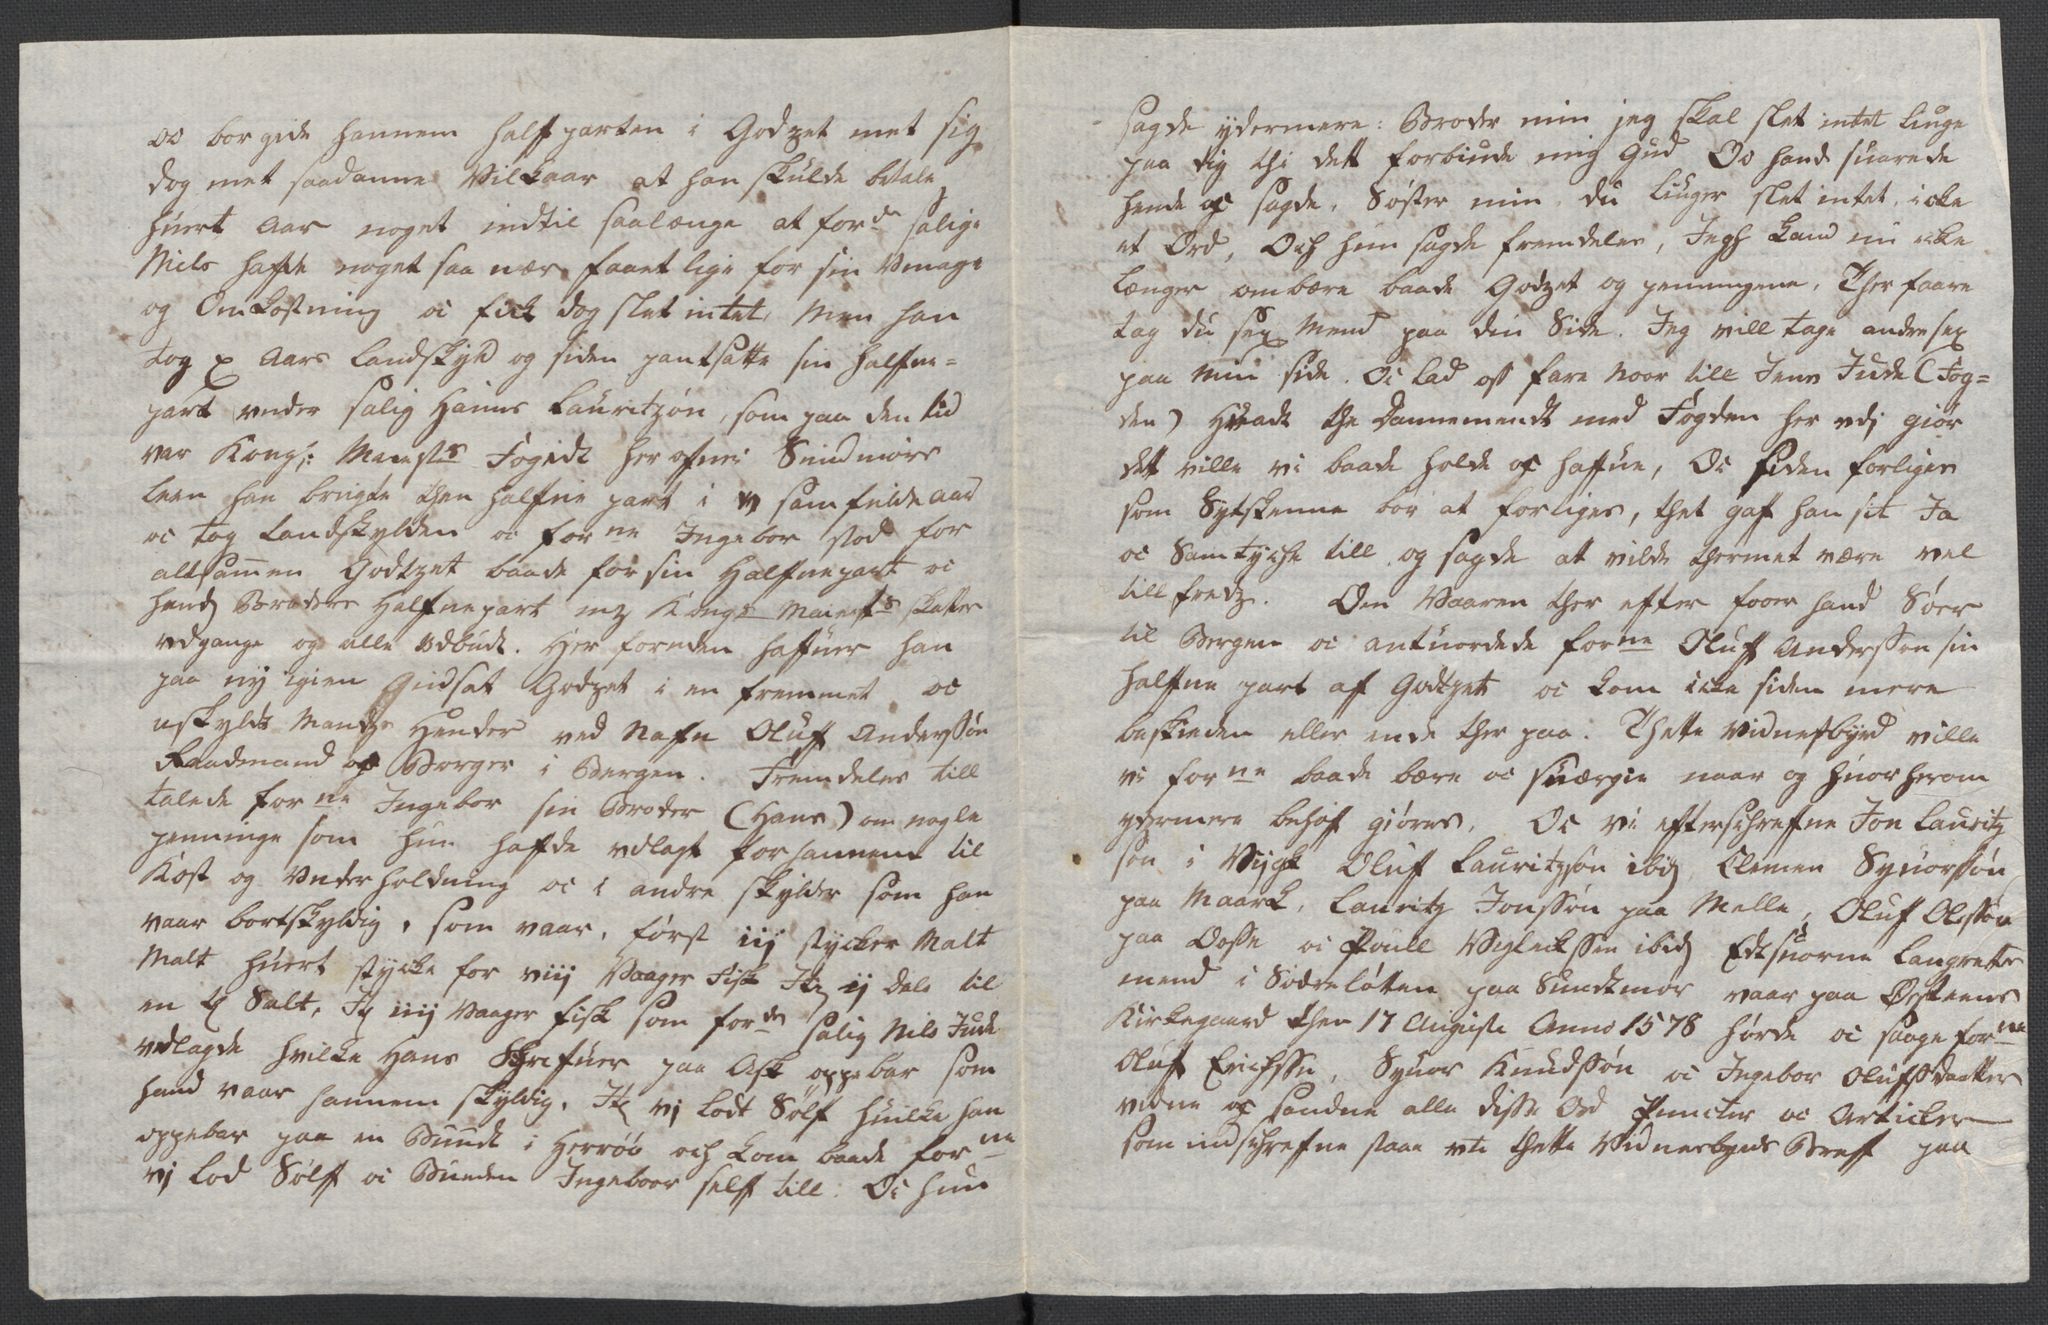 oc borgede hannem halffparten i Godzet met sig
dog met saadanne Vilkaar at han skulde betale
huert Aar noget indtil saalænge at for.de salige
Niels hafde noget saa nær faaet lige for sin Vmage
og Omkostning oc fick dog slet intet. Men han
tog x Aars Landskyld og siden pantsatte sin halffue=
part vnder salig Hanns Lauritzøn, som paa den tid
var Kong: Maiests Fogidt her ofuer Sundmøre
Leen han brugte then halffue part i v samfelde aar
oc tog Landskylden oc forne Ingebor stod for
altsammen Godtzet baade for sin Halffuepart oc
hends Broders Halffuepart mz Kong: Maiests skatter
vdgange og alle vdbudt. Her foruden haffuer han
paa ny igien indsat Godzet i en fremmet oc
uskyldt Mandz Hender ved Nafn Oluff Anderssøn
Raadmand og Borger i Bergen. Fremdeles till
talede forne Ingebor sin Broder (Hans) om nogle
penninge som hun hafde vdlagt for hannem til
Kost og Vnderholdning oc i andre skylder som han
vaar bortskyldig, som vaar, først iij stycker Malt
Malt huert stycke for viij Vaager Fisk Itz ij Dale til
en tz Salt, Itz iiij Vaager fisk som forde salig Nils Jude
vdlagde hvilke Hans Skrifuer paa Ask oppebar som
hand vaar hannem skyldig. Itz vj Lodt Sølf huilke han
oppebar paa en Bunde i Herröö och kom baade forne
vj Lod Sølff oc Bunden Ingeboor self till. Oc hun
sagde ydermere: Broder min jeg skal slet intet liuge
paa dig thi dett forbiude mig Gud Oc hand suarede
hende og sagde, Søster min, du liuger slet intet, icke
et Ord, Och hun sagde fremdeles, Jegh kand nu icke
længer ombære baade Godzet og penningene, Ther faare
tag du sex Mend paa din Side. Jeg vill tage andre sex
paa min side. Oc lad oss fare Noor till Jens Jude (Fog=
den) Hvadt the Dannemendt med Fogden her vdj giør
dett ville vi baade holde og haffue, Oc siden forliges
som Sytskenne bör at forliges, thet gaf han sit Ja
oc Samtyche till og sagde att vilde thermet være vel
till fredz. Om Vaaren ther efter foor hand Søer
til Bergen oc antuordede forne Oluff Anderssøn sin
halffue part af Godtzet oc kom icke siden mere
beskeeden eller ende ther paa. Thette Vidnesbyrd ville
vi forne baade bære oc suærgie naar og huor herom
ydermere behof giøres, Oc vi efterschreffne Jon Lauritz
søn i Vijgk Oluff Lauritzsøn ibid Clemen Syuorssøn
paa Maarck, Lauritz Jonssøn paa Melle, Oluf Olessøn
paa Osse oc Poull Vigleickssen ibid Edtsuorne Laugrettes
mend i Södreløtten paa Sundtmør vaar paa Ørsteens
Kirkegaard then 17 Augusti Anno 1578 hørde oc saage forne
Oluff Erichssn, Syuor Knudssøn oc Ingebor Olufsdaatter
vidne og sandne alle disse Ord Puncter oc Articler
som indschreffne staae vti thette Vidnesbyrds Breff paa